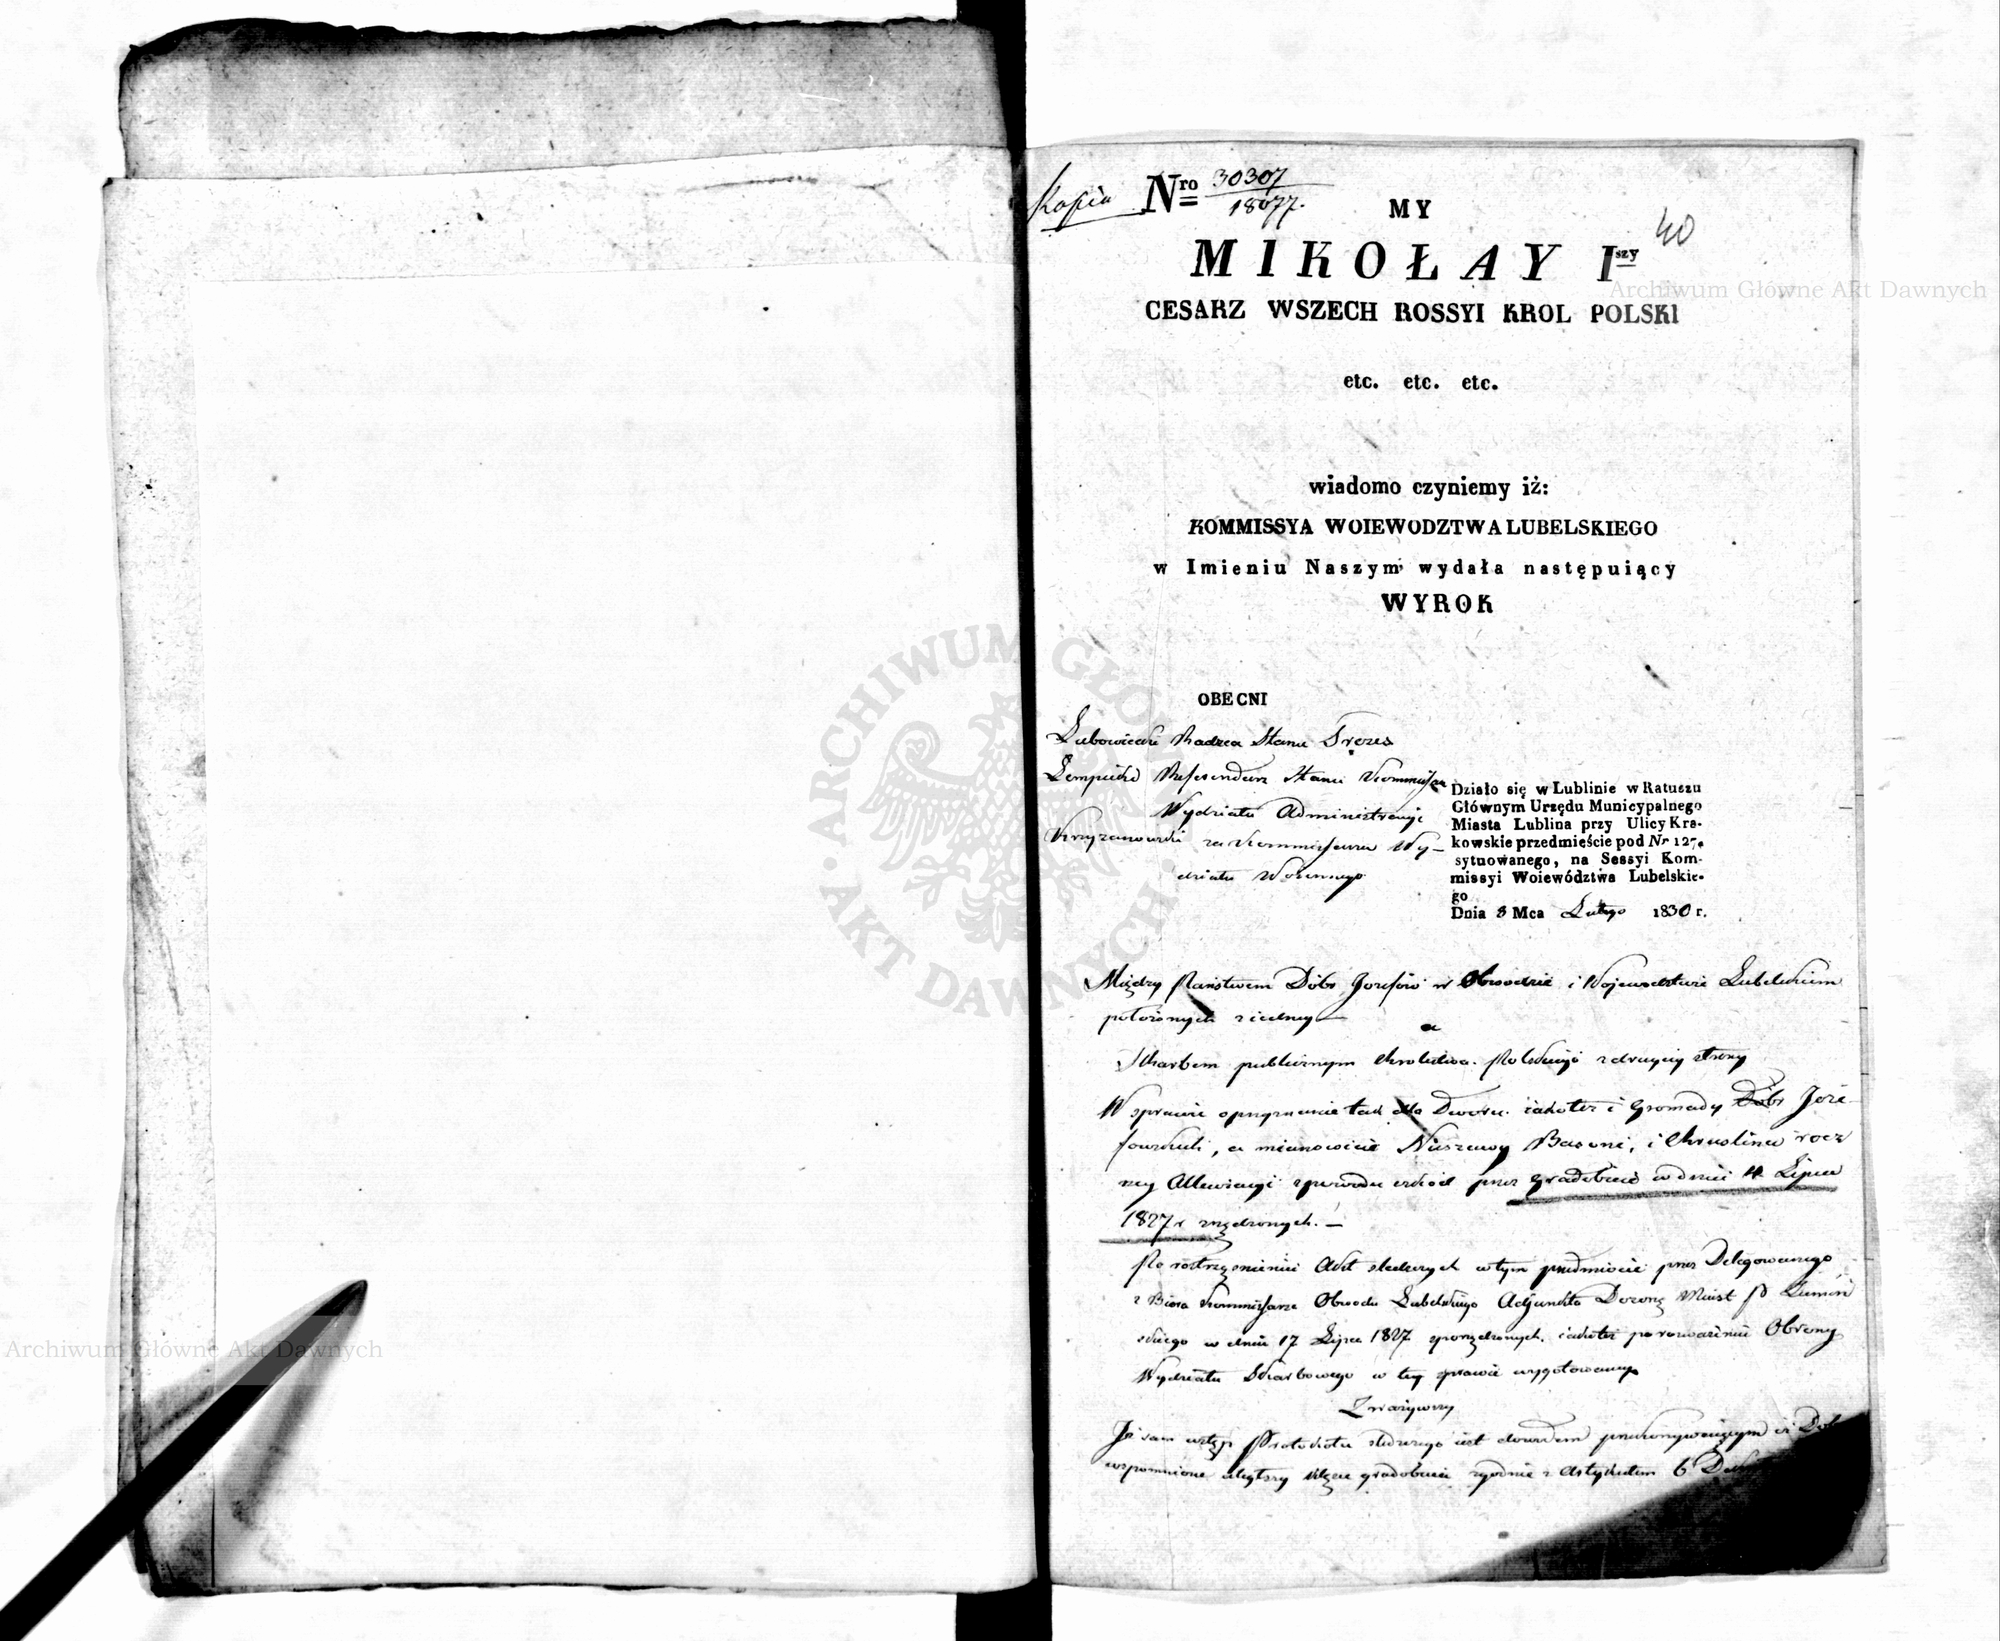 Kopia Nro 30307/18077.
40
MY
MIKOŁAY Iszy
CESARZ WSZECH ROSSYI KROL POLSKI
etc. etc. etc.
wiadomo czyniemy iż:
KOMMISSYA WOIEWODZTWA LUBELSKIEGO
w Imieniu Naszym wydała następuiący
WYROK
OBECNI
Lubowiecki Radzca Stanu Prezes
Lempicki Referendarz Stanu Kommissarz
Wydziału Administracyi
Krzyzanowski za Kommissarza Wy-
działu Woiennego
Działo się w Lublinie w Ratuszu
Głównym Urzędu Municypalnego
Miasta Lublina przy Ulicy Kra-
kowskie przedmieście pod Nr 127.
sytuowanego, na Sessyi Kom-
missyi Woiewództwa Lubelskie-
go
Dnia 8 Mca Lutego 1830 r.
Między Państwem Dóbr Jozefow w Obwodzie i Wojewodztwie Lubelskiem
położonych z iedney —
a
Skarbem publicznym Krolestwa Polskiego z drugiey strony
W sprawie o przyznanie tak dla Dworu iakoteż i Gromady Dóbr Joze-
fowskich, a mianowicie Niszawy Basoni, i Chruslina rocz
ney Allewiacyi z powodu szkod przez gradobicie w dniu 4 Lipca
1827 r zrządzonych. —
Po roztrząśnieniu Akt śledczych w tym przedmiocie przez Delegowanego
z Biora Kommissarza Obwodu Lubelskiego Adjunkta Dozorcę Miast P
skiego w dniu 17 Lipca 1827 sporządzonych, iakoteż po rozważeniu Obrony
Wydziału Skarbowego w tey sprawie wygotowaney
Zważywszy
Iż sam wstęp Protokołu śledczego iest dowodem przekonywaiącym iż Dobra
wspomnione uległszy klęsce gradobicia zgodnie z Artykułem 6
Archiwum Główne Akt Dawnych
Archiwum Główne Akt Dawnych
ARCHIWUM GŁÓWNE AKT DAWNYCH